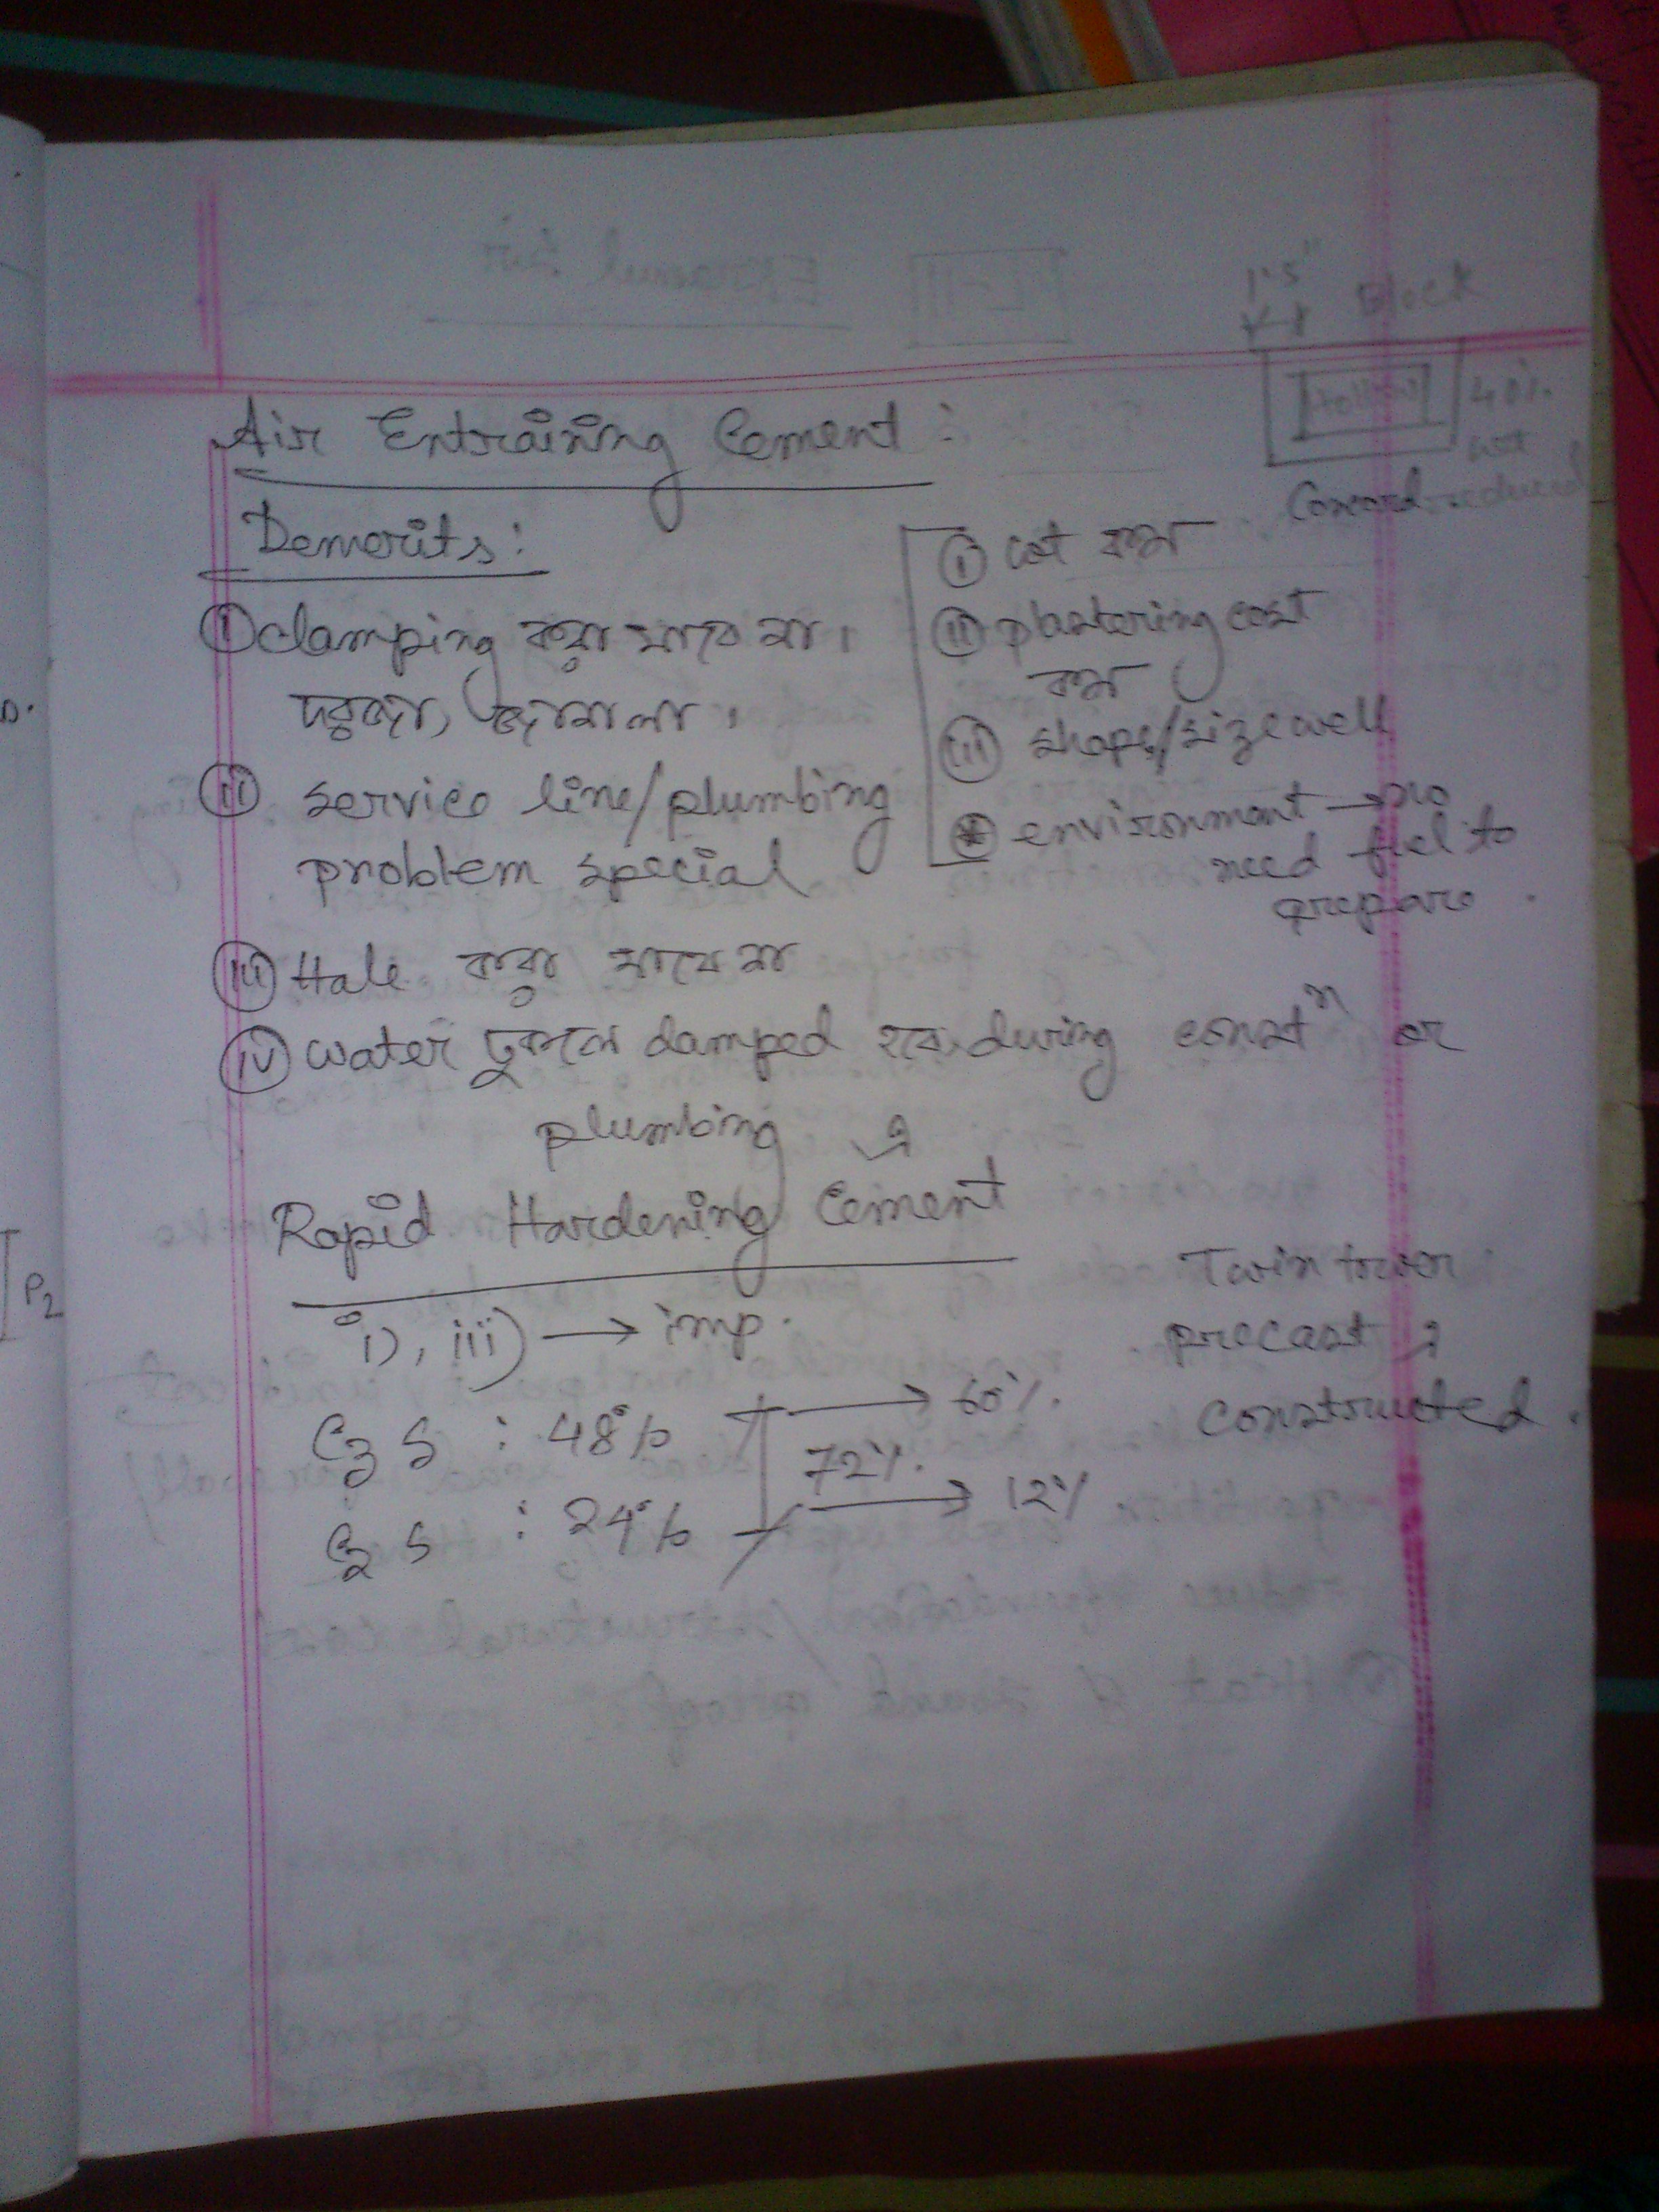 1.5" Block
Hollow 40%
wt
Concord reduced
Air Entraining Cement :
Demerits :
i clamping করা যাবে না।
দরজা, জানালা।
ii service line/plumbing
problem special
iii Hale করা যাবে না
iv water ঢুকলে damped হবে during constⁿ or
plumbing এ
i cost কম
ii plastering cost
কম
iii shape/size well
* environment → no
need fuel to
prepare.
Rapid Hardening Cement
i), iii) → imp.
C3S : 48% → 60%.
72%.
C2S : 24% → 12%
Twin tower
precast এ
constructed.
P2